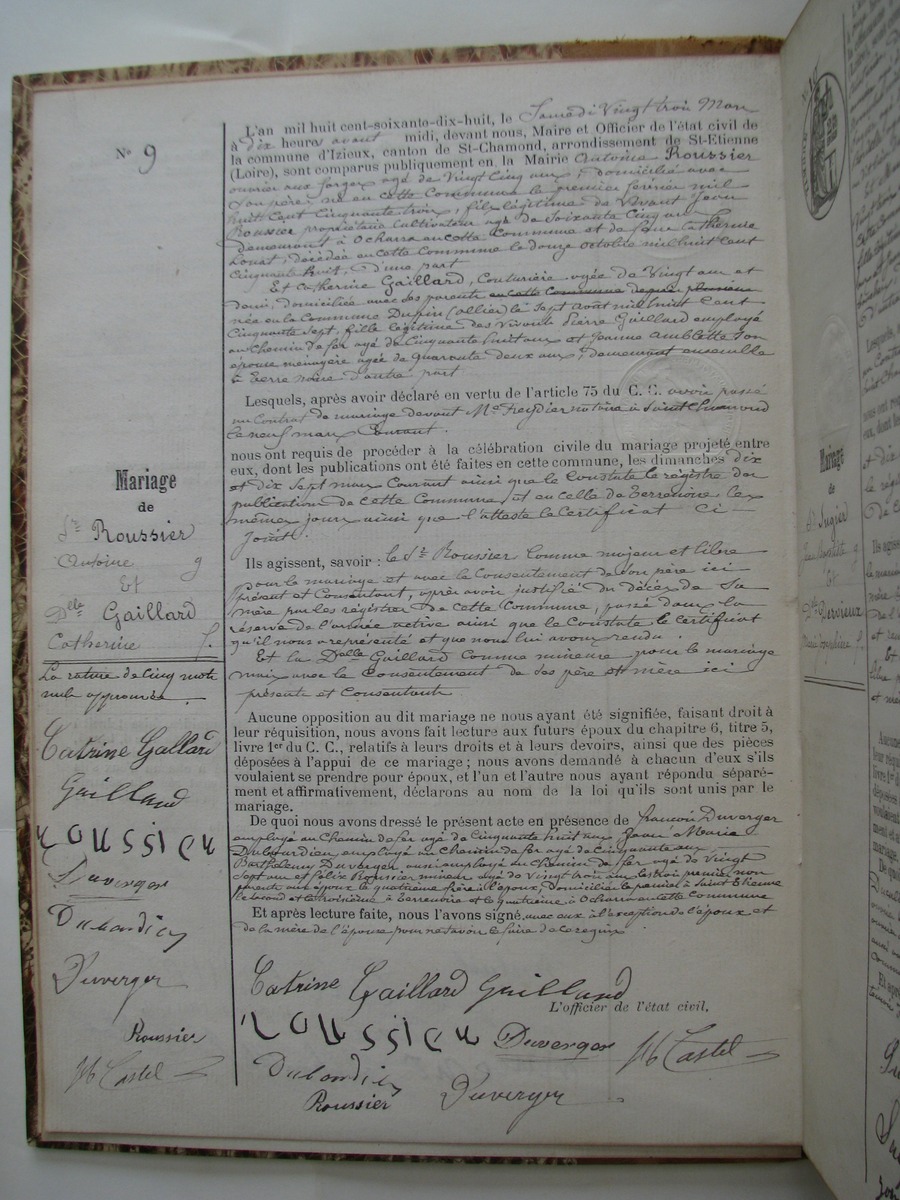 N° 9
Mariage
de
Sr Roussier
Antoine 9
Et
Dlle Gaillard
Catherine f.
La rature de cinq mots
nuls approuvée
Catrine Gallard
Gaillard
roussier
Duverger
Dubourdieu
Duverger
Roussier
Castel
L'an mil huit cent-soixante-dix-huit, le Samedi Vingt trois Mars
à Dix heures avant midi, devant nous, Maire et Officier de l'état civil de
la commune d'Izieux, canton de St-Chamond, arrondissement de St-Etienne
(Loire), sont comparus publiquement en la Mairie Antoine Roussier
ouvrier aux forges agé de Vingt Cinq ans, domicilié avec
son père, né en cette Commune le premier février mil
huit Cent Cinquante trois, fils légitime de Vivant Jean
Roussier propriétaire Cultivateur agé de Soixante Cinq ans
demeurant à Ocharra en cette Commune et de feue Catherine
, décédée en cette Commune le douze octobre mil huit Cent
Cinquante huit, d'une part
Et Catherine Gaillard, Couturière, agée de Vingt ans et
demi, domiciliée avec ses parents en cette Commune depuis plusieurs
née en la Commune Dupin (allier) le Sept Août mil huit Cent
Cinquante Sept, fille légitime des Vivants Pierre Gaillard employé
au Chemin de fer agé de Cinquante huit ans et Jeanne Amblette son
épouse ménagère agée de quarante deux ans, demeurant ensemble
à Terre noire d'autre part
Lesquels, après avoir déclaré en vertu de l'article 75 du C. C. avoir passé
un Contrat de mariage devant Me notaire à Saint Chamond
le neuf mars Courant.
nous ont requis de procéder à la célébration civile du mariage projeté entre
eux, dont les publications ont été faites en cette commune, les dimanches dix
et dix Sept mars Courant ainsi que le Constate le régistre des
publications de cette Commune, et en celle de Terrenoire les
mêmes jours ainsi que l'atteste le Certificat Ci-
Joint.
Ils agissent, savoir : le Sr Roussier Comme majeur et libre
pour le mariage et avec le Consentement de son père ici
présent et Consentant, après avoir justifié du décès de Sa
mère par les régistres de cette Commune, passé dans la
réserve de l'année active ainsi que le Constate le certificat
qu'il nous a représenté et que nous lui avons rendu.
Et la Delle Gaillard Comme mineure pour le mariage
mais avec le Consentement de Ses père et mère ici
présents et Consentants
Aucune opposition au dit mariage ne nous ayant été signifiée, faisant droit à
leur réquisition, nous avons fait lecture aux futurs époux du chapitre 6, titre 5,
livre 1er du C. C., relatifs à leurs droits et à leurs devoirs, ainsi que des pièces
déposées à l'appui de ce mariage ; nous avons demandé à chacun d'eux s'ils
voulaient se prendre pour époux, et l'un et l'autre nous ayant répondu séparé-
ment et affirmativement, déclarons au nom de la loi qu'ils sont unis par le
mariage.
De quoi nous avons dressé le présent acte en présence de françois Duverger
employé au Chemin de fer agé de Cinquante huit ans Marie
Dubourdieu employé au Chemin de fer agé de Cinquante ans
Barthélemy Duverger aussi employé au Chemin de fer agé de Vingt
Sept ans et félix Roussier mineur agé de Vingt trois ans les trois premiers non
parents aux époux le quatrième frère à l'époux, domiciliés le premier à Saint Etienne
le second et le troisième à Terrenoire et le quatrième à Ocharra en cette Commune
Et après lecture faite, nous l'avons signé avec eux à l'exception de l'époux et
de la mère de l'épouse pour ne savoir le faire de ce requis.
Catrine Gaillard Gaillard
L'officier de l'état civil,
roussier Duverger Castel
Dubourdieu
Roussier Duverger
Mariage
de
Sr Sugier
Et
Dlle Dervieux